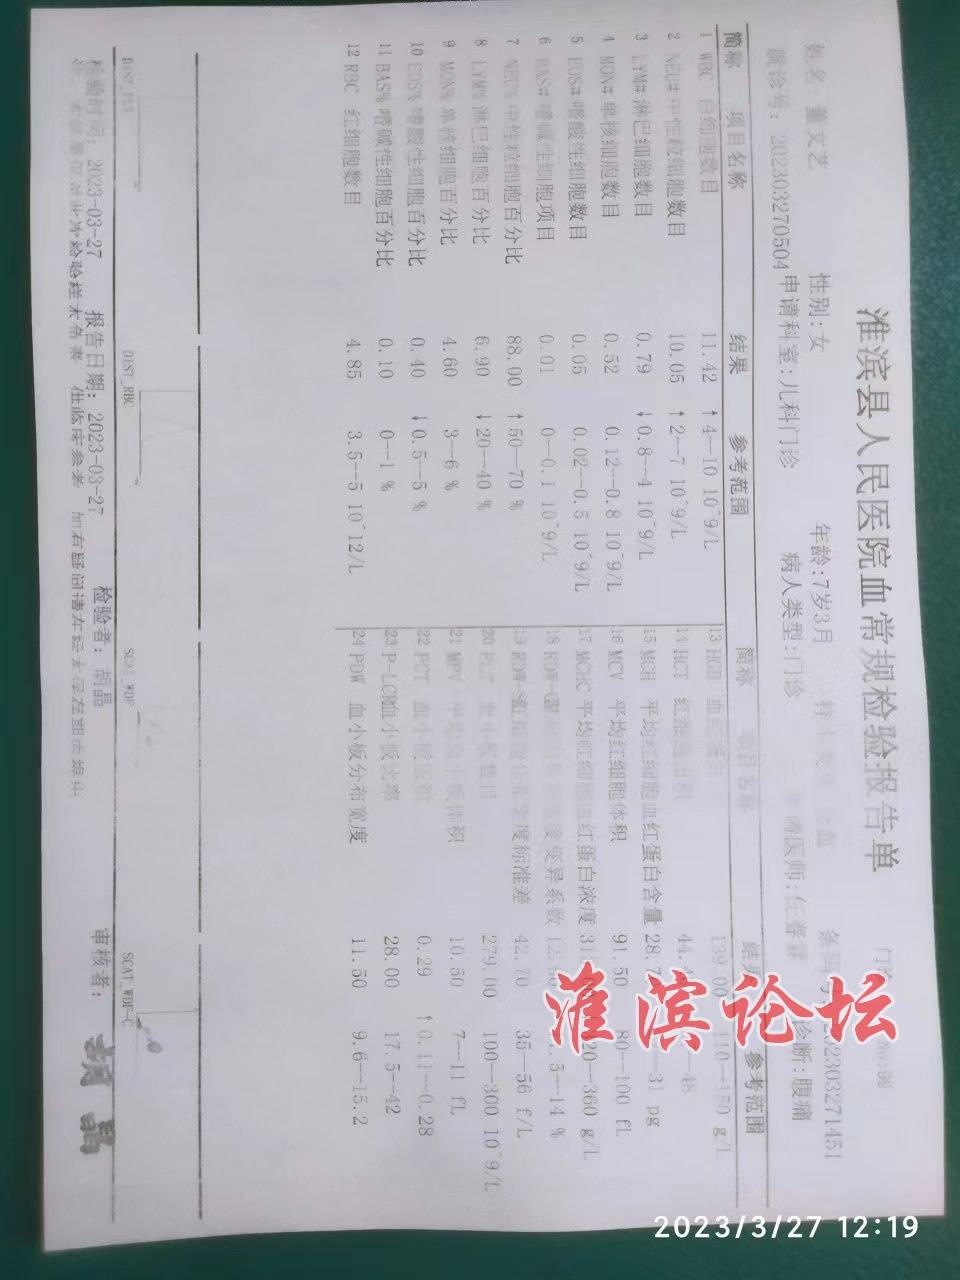 淮滨县人民医院血常规检验报告单
姓名:董文艺 性别:女 年龄:7岁3月
就诊号:202303270504 申请科室:儿科门诊 病人类型:门诊 诊断:腹痛
简称 项目名称 结果 参考范围
1 WBC 白细胞数目 11.42 ↑ 4--10 10^9/L
2 NEU# 中性粒细胞数目 10.05 ↑ 2--7 10^9/L
3 LYM# 淋巴细胞数目 0.79 ↓ 0.8--4 10^9/L
4 MON# 单核细胞数目 0.52 0.12--0.8 10^9/L
5 EOS# 嗜酸性细胞数目 0.05 0.02--0.5 10^9/L
6 BAS# 嗜碱性细胞项目 0.01 0--0.1 10^9/L
7 NEU% 中性粒细胞百分比 88.00 ↑ 50--70 %
8 LYM% 淋巴细胞百分比 6.90 ↓ 20--40 %
9 MON% 单核细胞百分比 4.60 3--6 %
10 EOS% 嗜酸性细胞百分比 0.40 ↓ 0.5--5 %
11 BAS% 嗜碱性细胞百分比 0.10 0--1 %
12 RBC 红细胞数目 4.85 3.5--5 10^12/L
简称 项目名称 结果 参考范围
13 HGB 139.00 110--150 g/L
14 HCT 红细胞压积
15 MCH 平均红细胞血红蛋白含量 28.7 --31 pg
16 MCV 平均红细胞体积 91.50 80--100 fL
17 MCHC 平均红细胞血红蛋白浓度 --360 g/L
18 宽度变异系数 --14 %
19 宽度标准差 42.70 35--56 f/L
20 PLT 血小板数目 279.00 100--300 10^9/L
21 MPV 平均血小板体积 10.50 7--11 fL
22 PCT 血小板压积 0.29 ↑ 0.11--0.28
23 P-LCR 血小板比率 28.00 17.5--42
24 PDW 血小板分布宽度 11.50 9.6--15.2
DIST_PLT DIST_RBC SCAT_WDF SCAT_WDF-C
检验时间:2023-03-27 报告日期:2023-03-27 检验者:胡晶 审核者:
淮滨论坛
2023/3/27 12:19